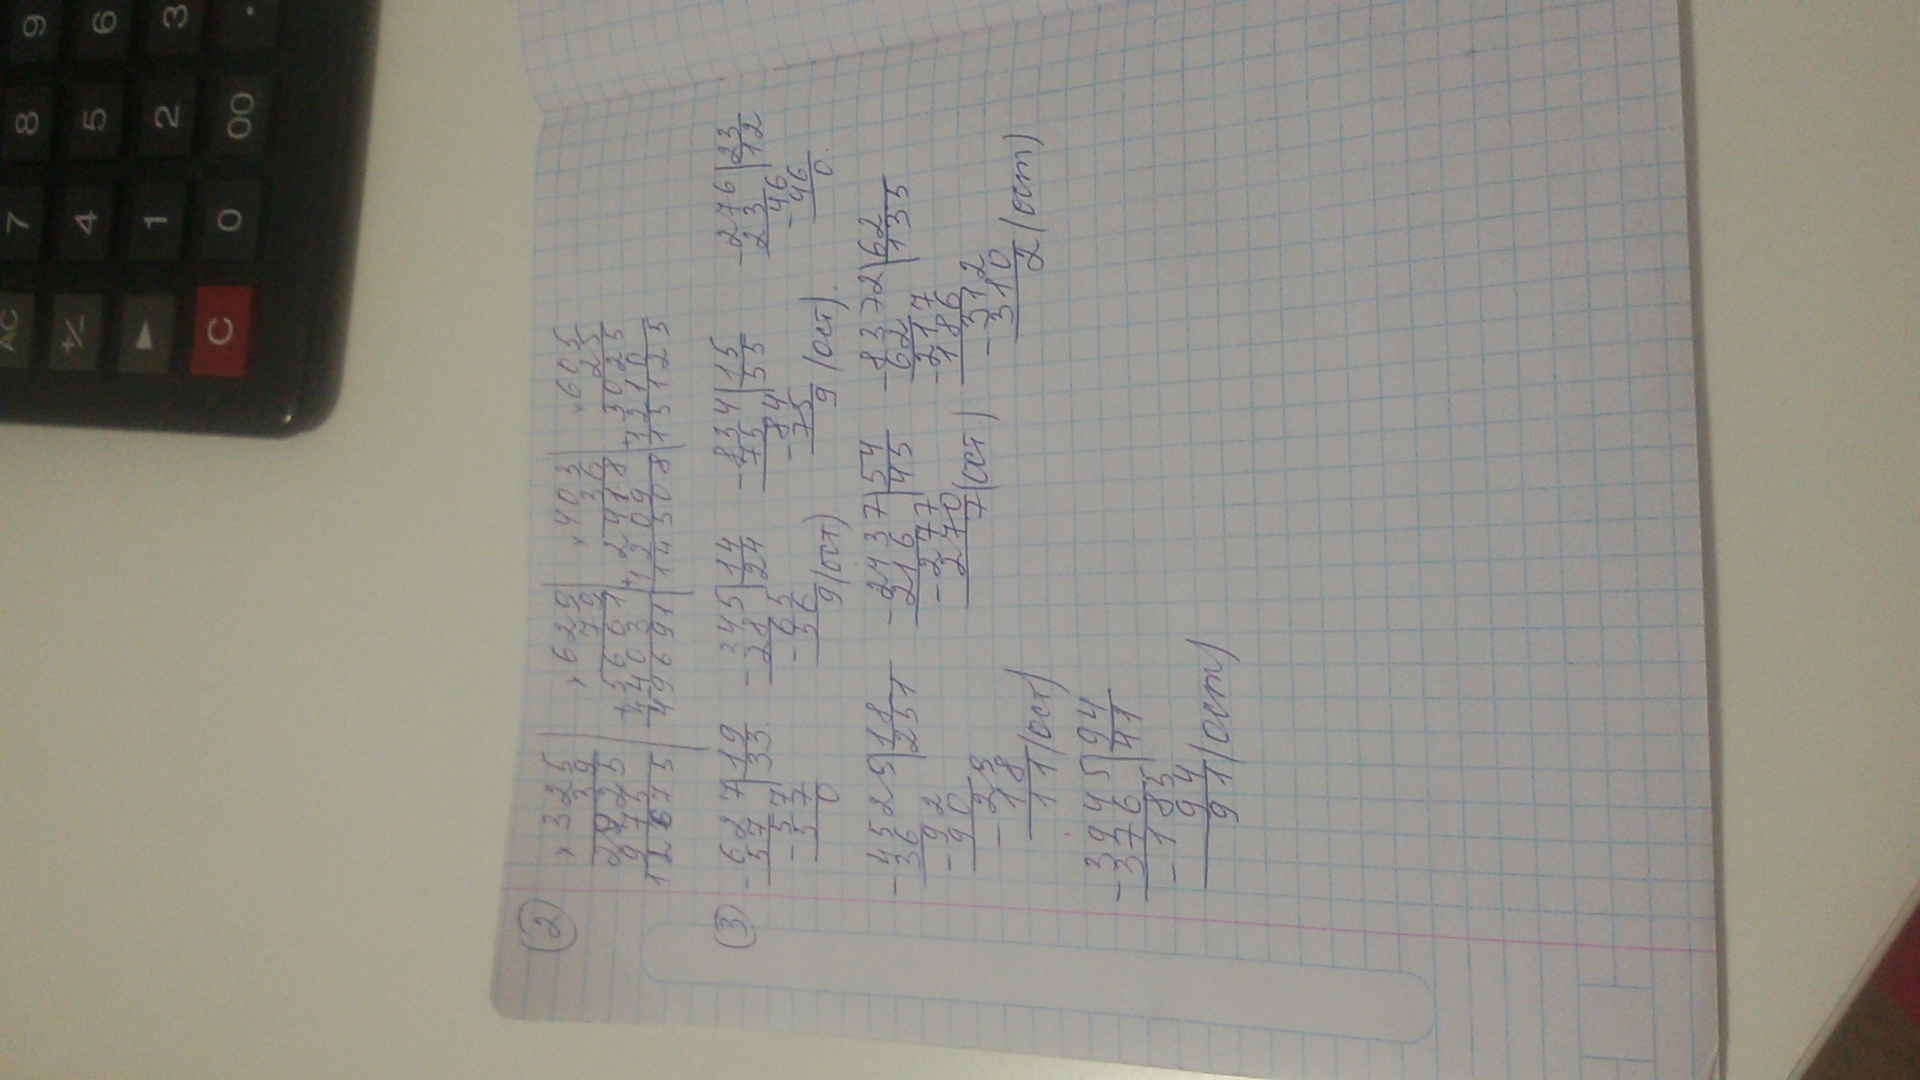 ②
× 325 × 629 × 403 × 605
39 79 36 25
2925 5661 2418 3025
975 + 4403 + 1209 + 1210
12675 49691 14508 15125
③
- 627 | 19 - 345 | 14 - 834 | 15 - 276 | 23
57 | 33 28 | 24 75 | 55 23 | 12
- 57 - 65 - 84 - 46
57 56 75 46
0 9 (ост) 9 (ост). 0.
- 4529 | 18 - 2437 | 54 - 8372 | 62
36 | 251 216 | 45 62 | 135
- 92 - 277 - 217
90 270 186
- 29 7 (ост.) - 312
18 310
11 (ост) 2 (ост)
- 3945 | 94
376 | 41
- 185
94
91 (ост)
AC 7 8 9
+/- 4 5 6
▶ 1 2 3
C 0 00 .